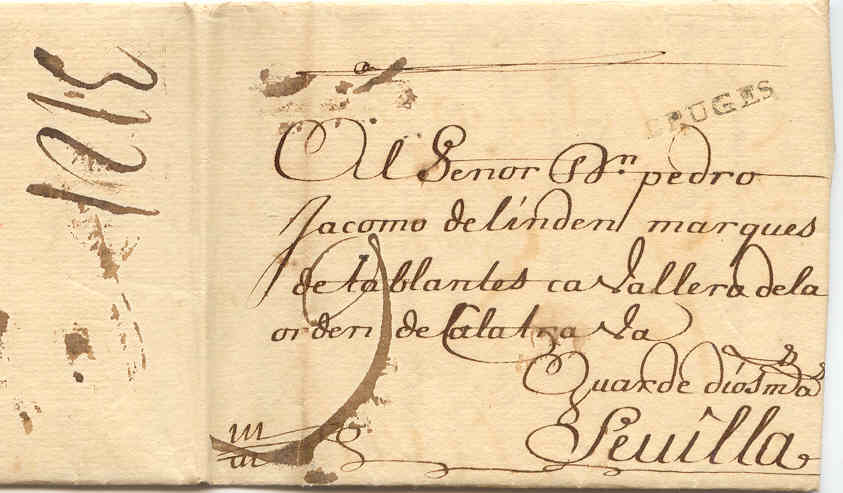 BRUGES
Al Señor Dn pedro
Jacomo de linden marques
de tablantes cavallero de la
orden de Calatrava
Guarde dios ma s
Sevilla